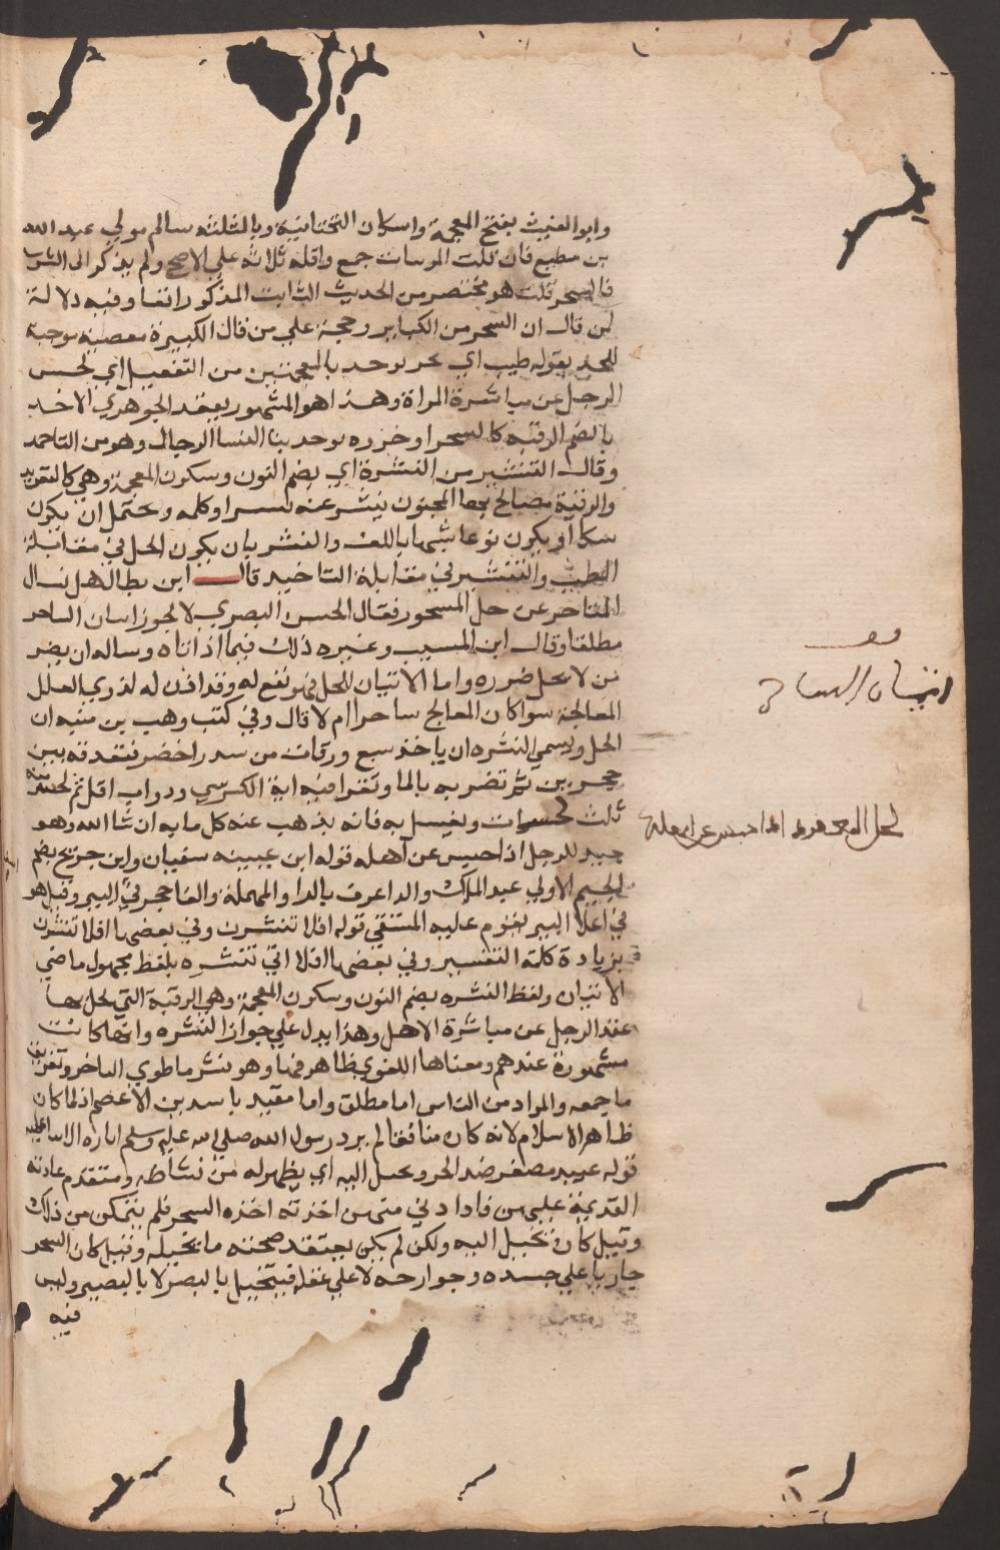 وابو الغيث بفتح المعجمة واسكان التحتانية وبالمثلثة سالم مولي عبد الله
بن مطيع فان قلت الموبقات جمع واقله ثلاثة علي الاصح ولم يذكر الا الشرك
فالسحر قلت هو مختصر من الحديث الثابت المذكور انفا وفيه دلالة
لمن قال ان السحر من الكباير وحجة علي من قال الكبيرة معصية موجبة
للحد بقوله طب اي سحر يوخذ بالمعجمتين من التفعيل اي يحبس
الرجل عن مباشرة المراة وهذا هو المشهور بعقد الجوهري الاخذ
بالضم الرقية كالسحر او خرزه يوخذ بها النسا الرجال وهو من التاخيذ
وقال التنشير من النشرة اي بضم النون وسكون المعجمة وهي كالتعويذ
والرقية يعالج بها المجنون ينشر عنه وكلمه ويحتمل ان يكون
شكا او يكون نوعا شبيها باللف والنشر بان يكون الحل في مقابلة
الطب والتنشير في مقابلة التاخيذ قال ابن بطال هل يسال
الساحر عن حل المسحور فقال الحسن البصري لا يجوز اتيان الساحر
مطلقا وقال ابن المسيب وغيره ذلك فيما اذا اتاه وساله ان يضر
من لا يحل ضرره واما الاتيان للحل فهو نفع له وقد اذن له لذوي العلل
المعالجة سوا كان المعالج ساحرا ام لا قال وفي كتب وهب بن منبه ان
الحل ويسمي النشره ان ياخذ سبع ورقات من سدر اخضر فتدقه بين
حجرين ثم تضربه بالما وتقرا فيه اية الكرسي وذوات اقل ثم يحسو منه
ثلث حسوات ويغسل به فانه يذهب عنه كل ما به ان شا الله وهو
جيد للرجل اذا حبس عن اهله قوله ابن عيينه سفيان وابن جريج بضم
الجيم الاولي عبد الملك والراعوفة بالرا والمهملة والفا حجر في البير وقيل هو
في اعلا البير يقوم عليه المستقي قوله افلا تنشرت وفي بعضها افلا تنشرت
بزيادة كلمة التفسير وفي بعضها افلا اتي تنشره بلفظ مجهول ماضي
الاتيان ولفظ النشره بضم النون وسكون المعجمة وهي الرقية التي يحل بها
عقد الرجل عن مباشرة الاهل وهذا يدل علي جواز النشره وانها كانت
مشهورة عندهم ومعناها اللغوي ظاهر فيها وهو نشر ما طوي الساحر وتفريق
ما جمعه والمراد من الناس اما مطلق واما مقيد بلبيد بن الاعصم اذ لما كان
ظاهر الاسلام لانه كان منافقا لم يرد رسول الله صلي الله عليه وسلم اثارة
قوله عبيد مصغر ضد الحر ويخيل اليه اي يظهر له من نشاطه ومتقدم عادته
القديمة فاذا دني منهن اخذته اخذه السحر فلم يتمكن من ذلك
وقيل كان يخيل اليه ولكن لم يكن يعتقد صحته ما يخيله وقيل كان السحر
جاريا علي جسده وجوارحه لا علي عقله فيتخيل بالبصر لا بالبصير وليس
فيه